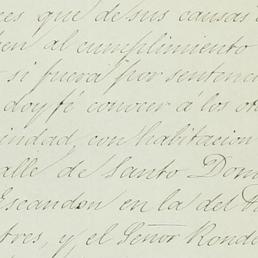 ces que de sus causas
en al cumplimiento
si fuera por sentenc
doy fé conocer á los ot
iudad con habitacion
alle de Santo Dom
Escandon en la del
tres, y el Señor Rond